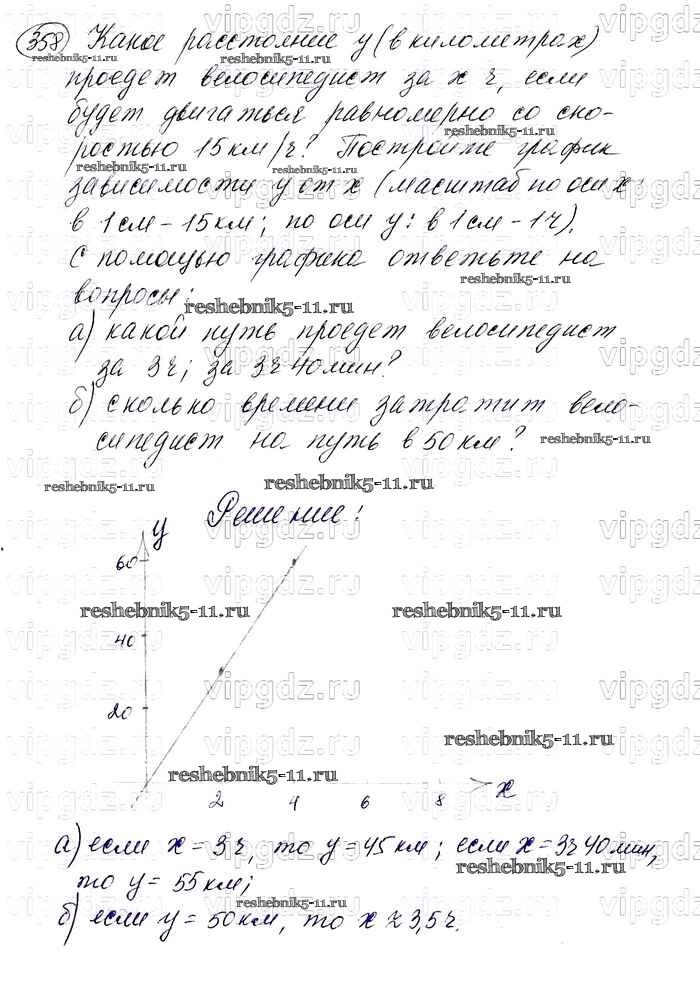 358 Какое расстояние у (в километрах)
проедет велосипедист за х ч, если
будет двигаться равномерно со ско-
ростью 15 км/ч? Постройте график
зависимости у от х (масштаб по оси х:
в 1 см - 15 км; по оси у: в 1 см - 1 ч).
С помощью графика ответьте на
вопросы:
а) какой путь проедет велосипедист
за 3 ч; за 3 ч 40 мин?
б) сколько времени затратит вело-
сипедист на путь в 50 км?
Решение:
у
60
40
20
2 4 6 8 х
а) если х = 3 ч, то у = 45 км; если х = 3 ч 40 мин,
то у = 55 км;
б) если у = 50 км, то х ≈ 3,5 ч.
reshebnik5-11.ru
vipgdz.ru